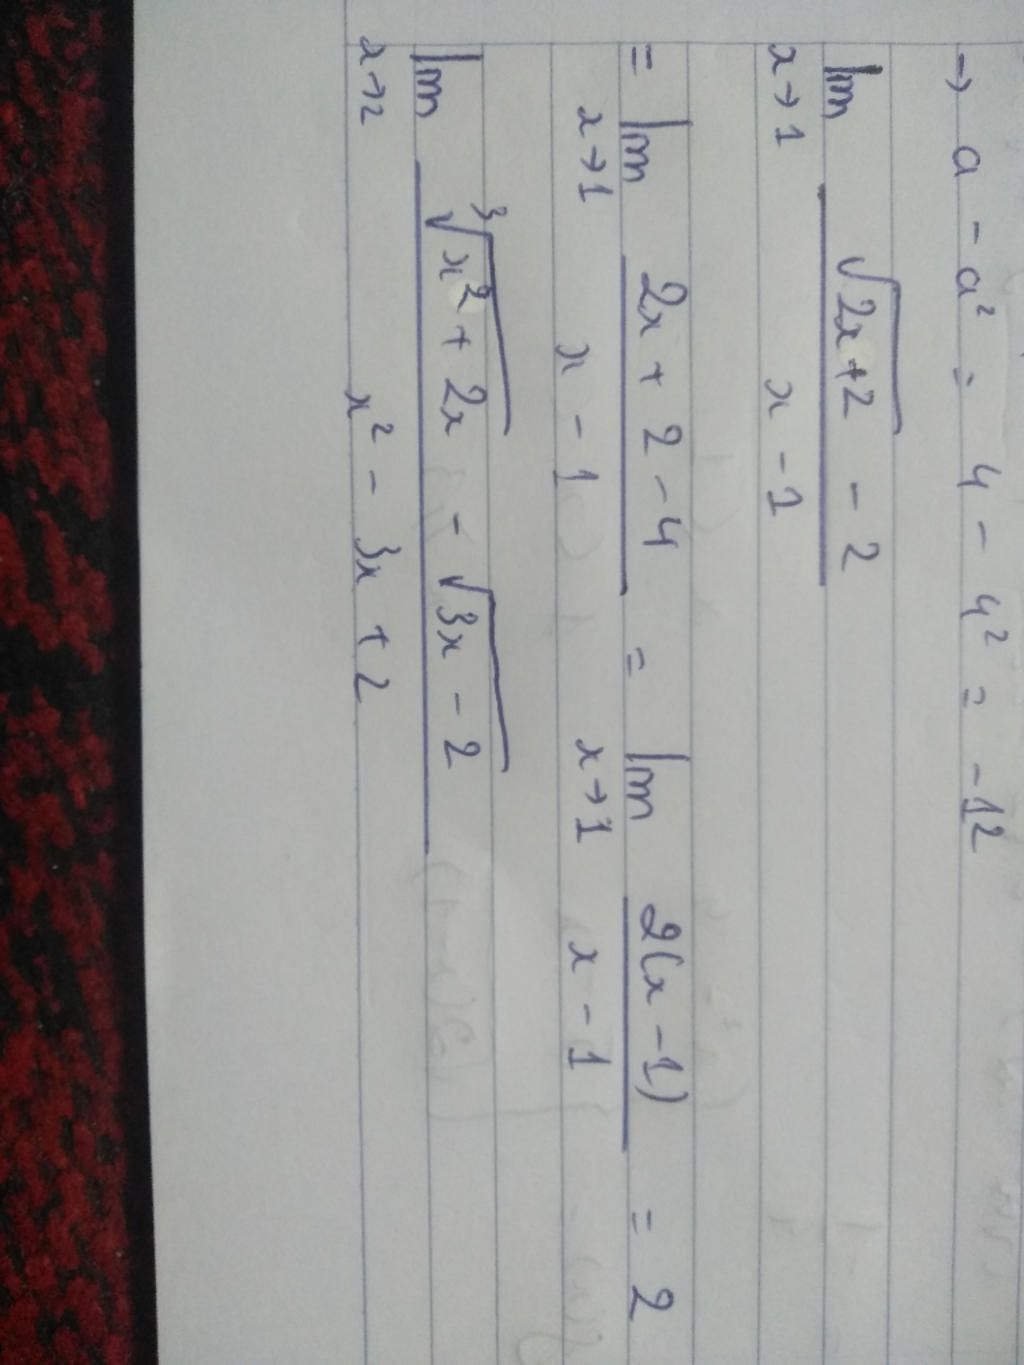 → a - a² = 4 - 4² = -12
lim x→1 (√(2x+2) - 2) / (x - 1)
= lim x→1 (2x + 2 - 4) / (x - 1) = lim x→1 2(x - 1) / (x - 1) = 2
lim x→2 (∛(x² + 2x) - √(3x - 2)) / (x² - 3x + 2)